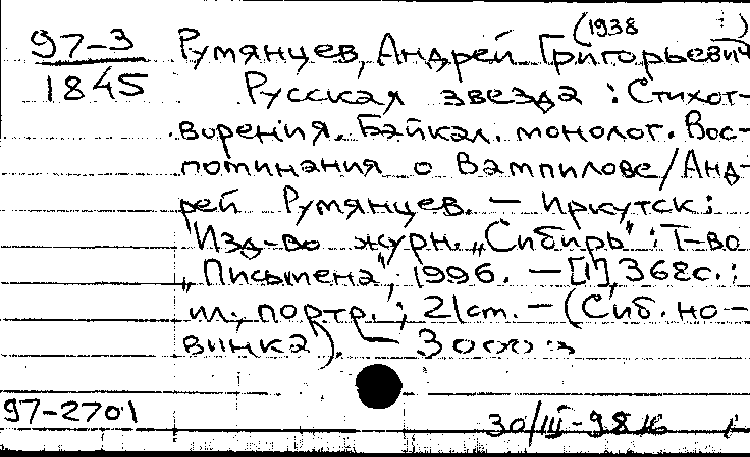 (1938 )
97-3 Румянцев, Андрей Григорьевич
1845 Русская звезда : Стихот-
ворения. Байкал. монолог. Вос-
поминания о Вампилове/Анд-
рей Румянцев. — Иркутск:
Изд-во журн. „Сибирь" : Т-во
„Письмена", 1996. — [1], 368с.:
ил., портр.; 21cm. — (Сиб. но-
винка). — 3000э
97-2701 30/III-98